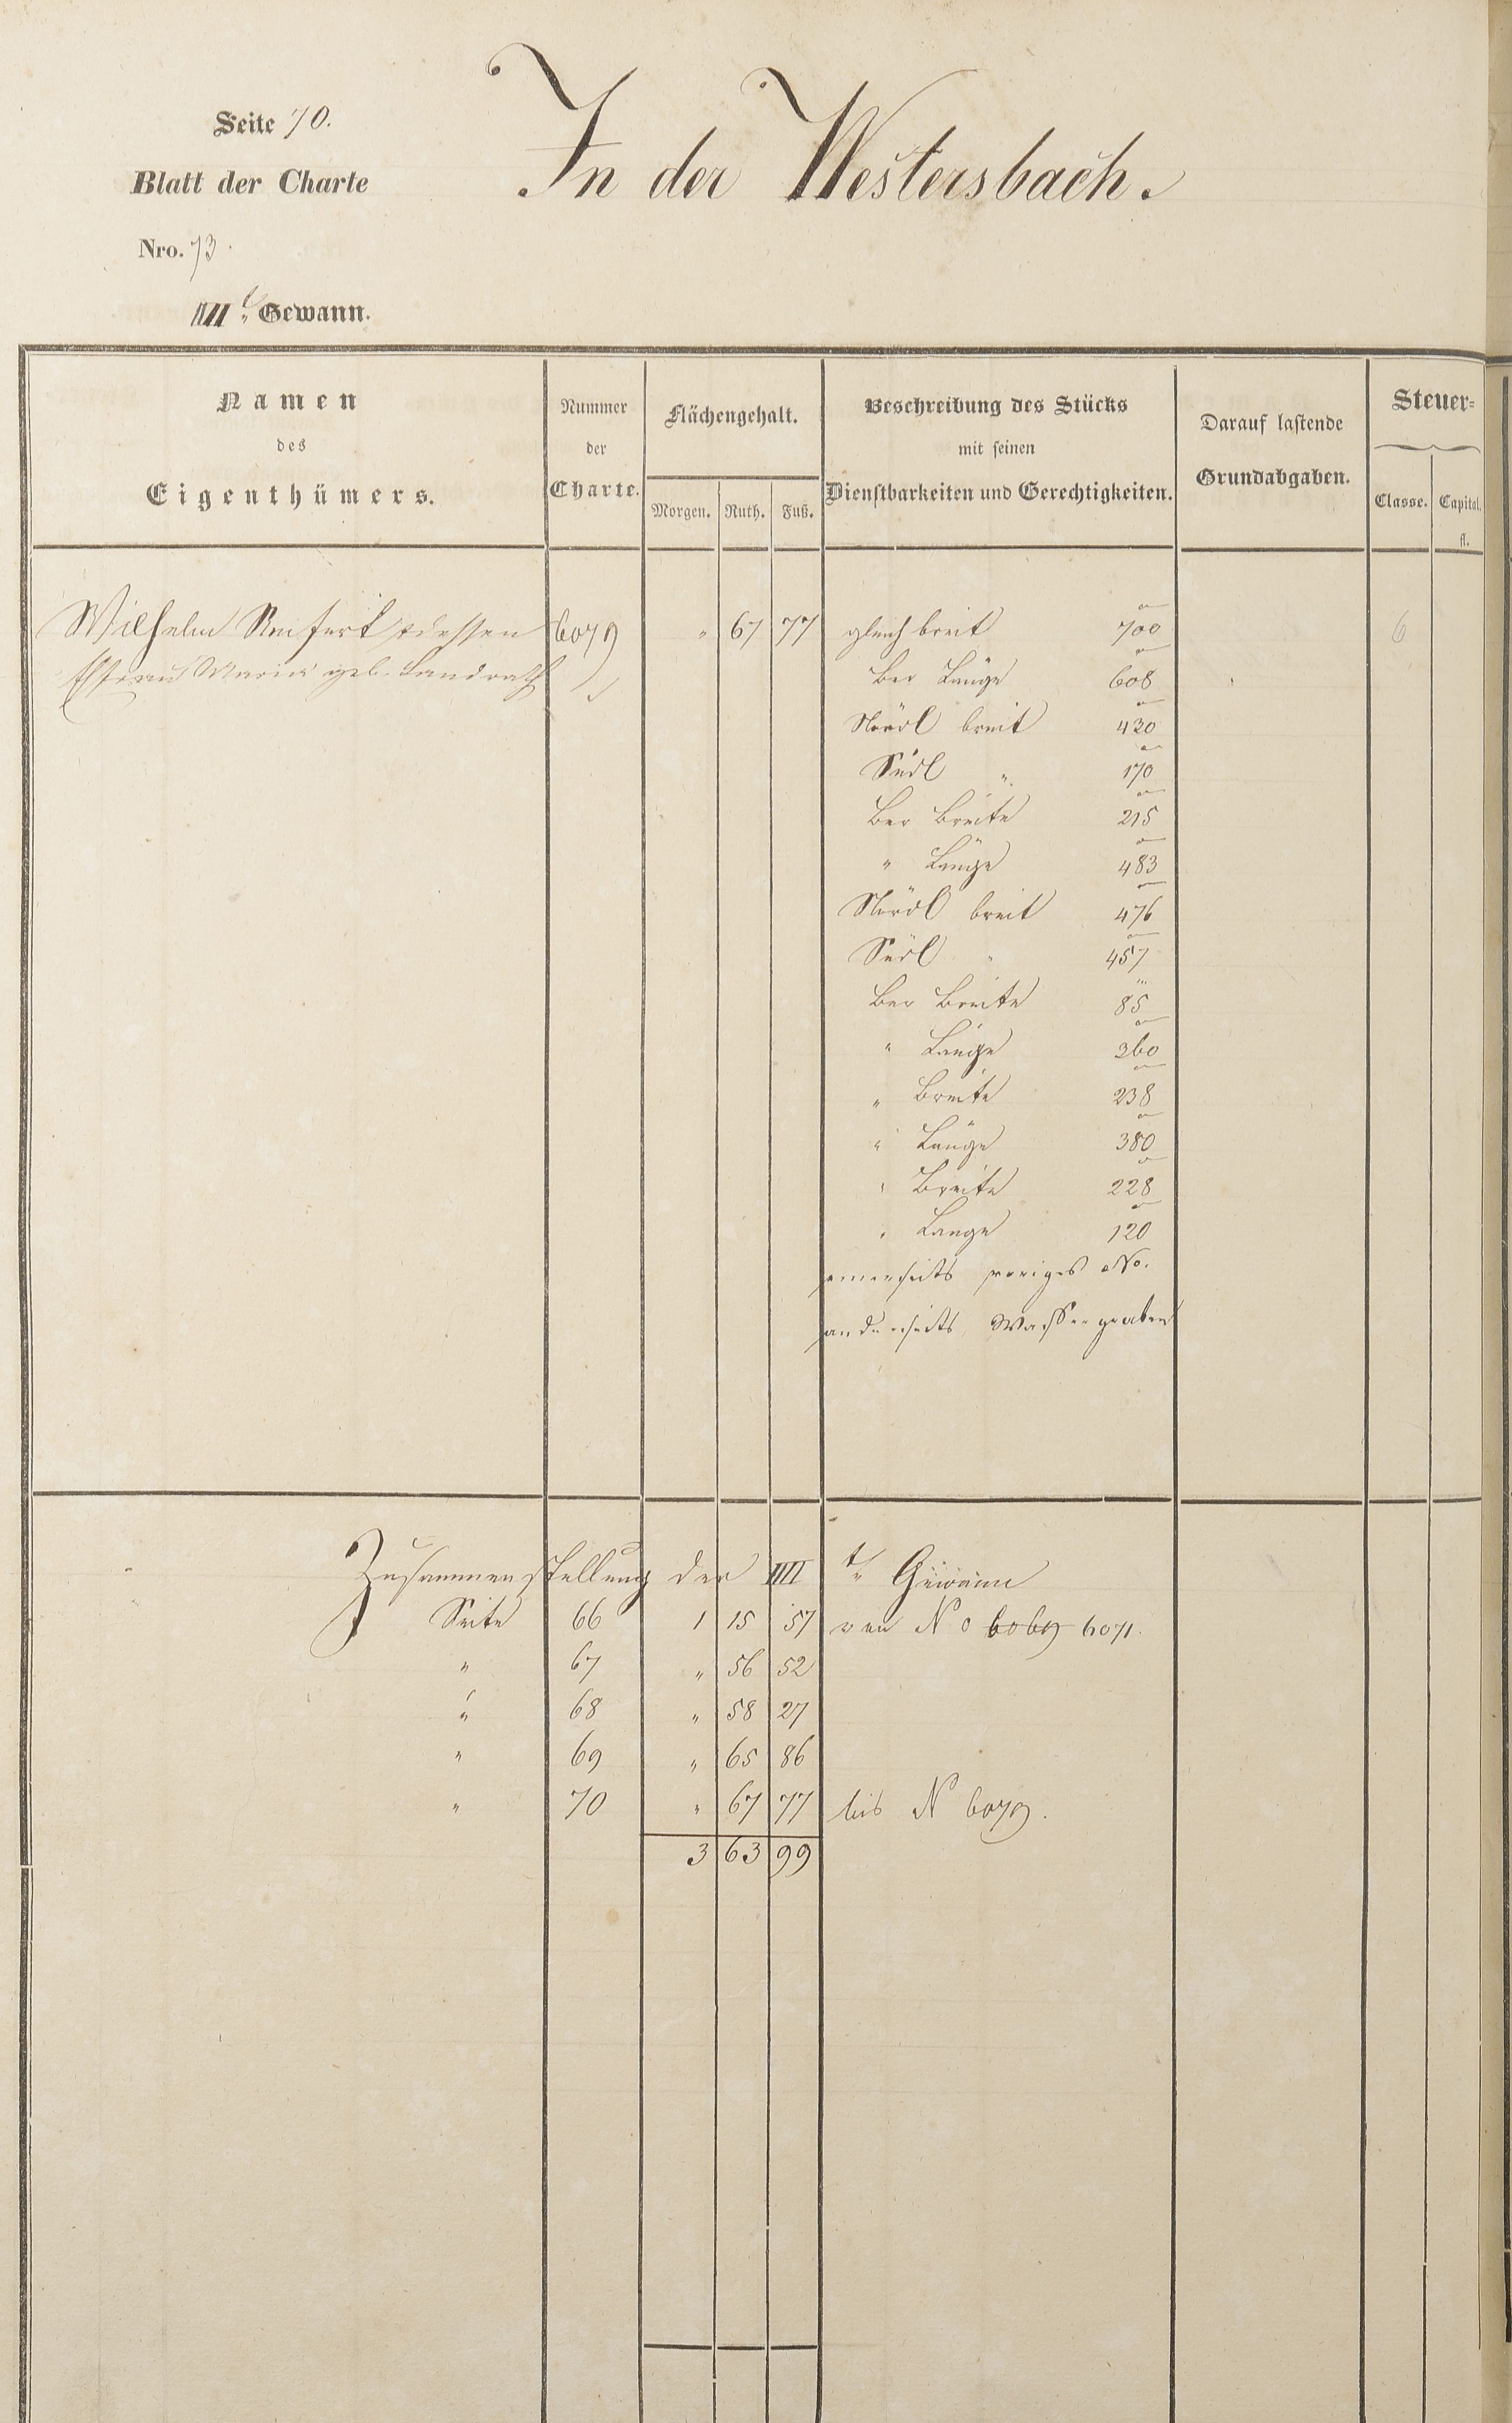 Seite 70.
In der Westersbach.
Blatt der Charte
Nro. 73.
IIII te Gewann.
Namen
des
Eigenthümers.
Nummer
der
Charte.
Flächengehalt.
Morgen. Ruth. Fuß.
Beschreibung des Stücks
mit seinen
Dienstbarkeiten und Gerechtigkeiten.
Darauf lastende
Grundabgaben.
Steuer=
Classe. Capital.
fl.
Wilhelm Reifert dessen 6079 " 67 77 gleich breit 700 6
Ehfrau Maria geb. Landrath Ber Länge 608
Nördl breit 430
Südl " 170
Ber Breite 215
" Länge 483
Nördl breit 476
Südl " 457
Ber Breite 85
" Länge 360
" Breite 238
" Länge 380
" Breite 228
" Länge 120
einerseits voriges No.
anderseits Wassergraben
Zusammenstellung der IIII te Gewann
Seite 66 1 15 57 von No 6069 6071.
" 67 " 56 52
" 68 " 58 27
" 69 " 65 86
" 70 " 67 77 bis N 6079.
3 63 99